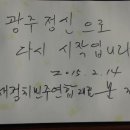 광주정신으로
다시 시작입니다
2015. 2. 14
새정치민주연합 대표 문재